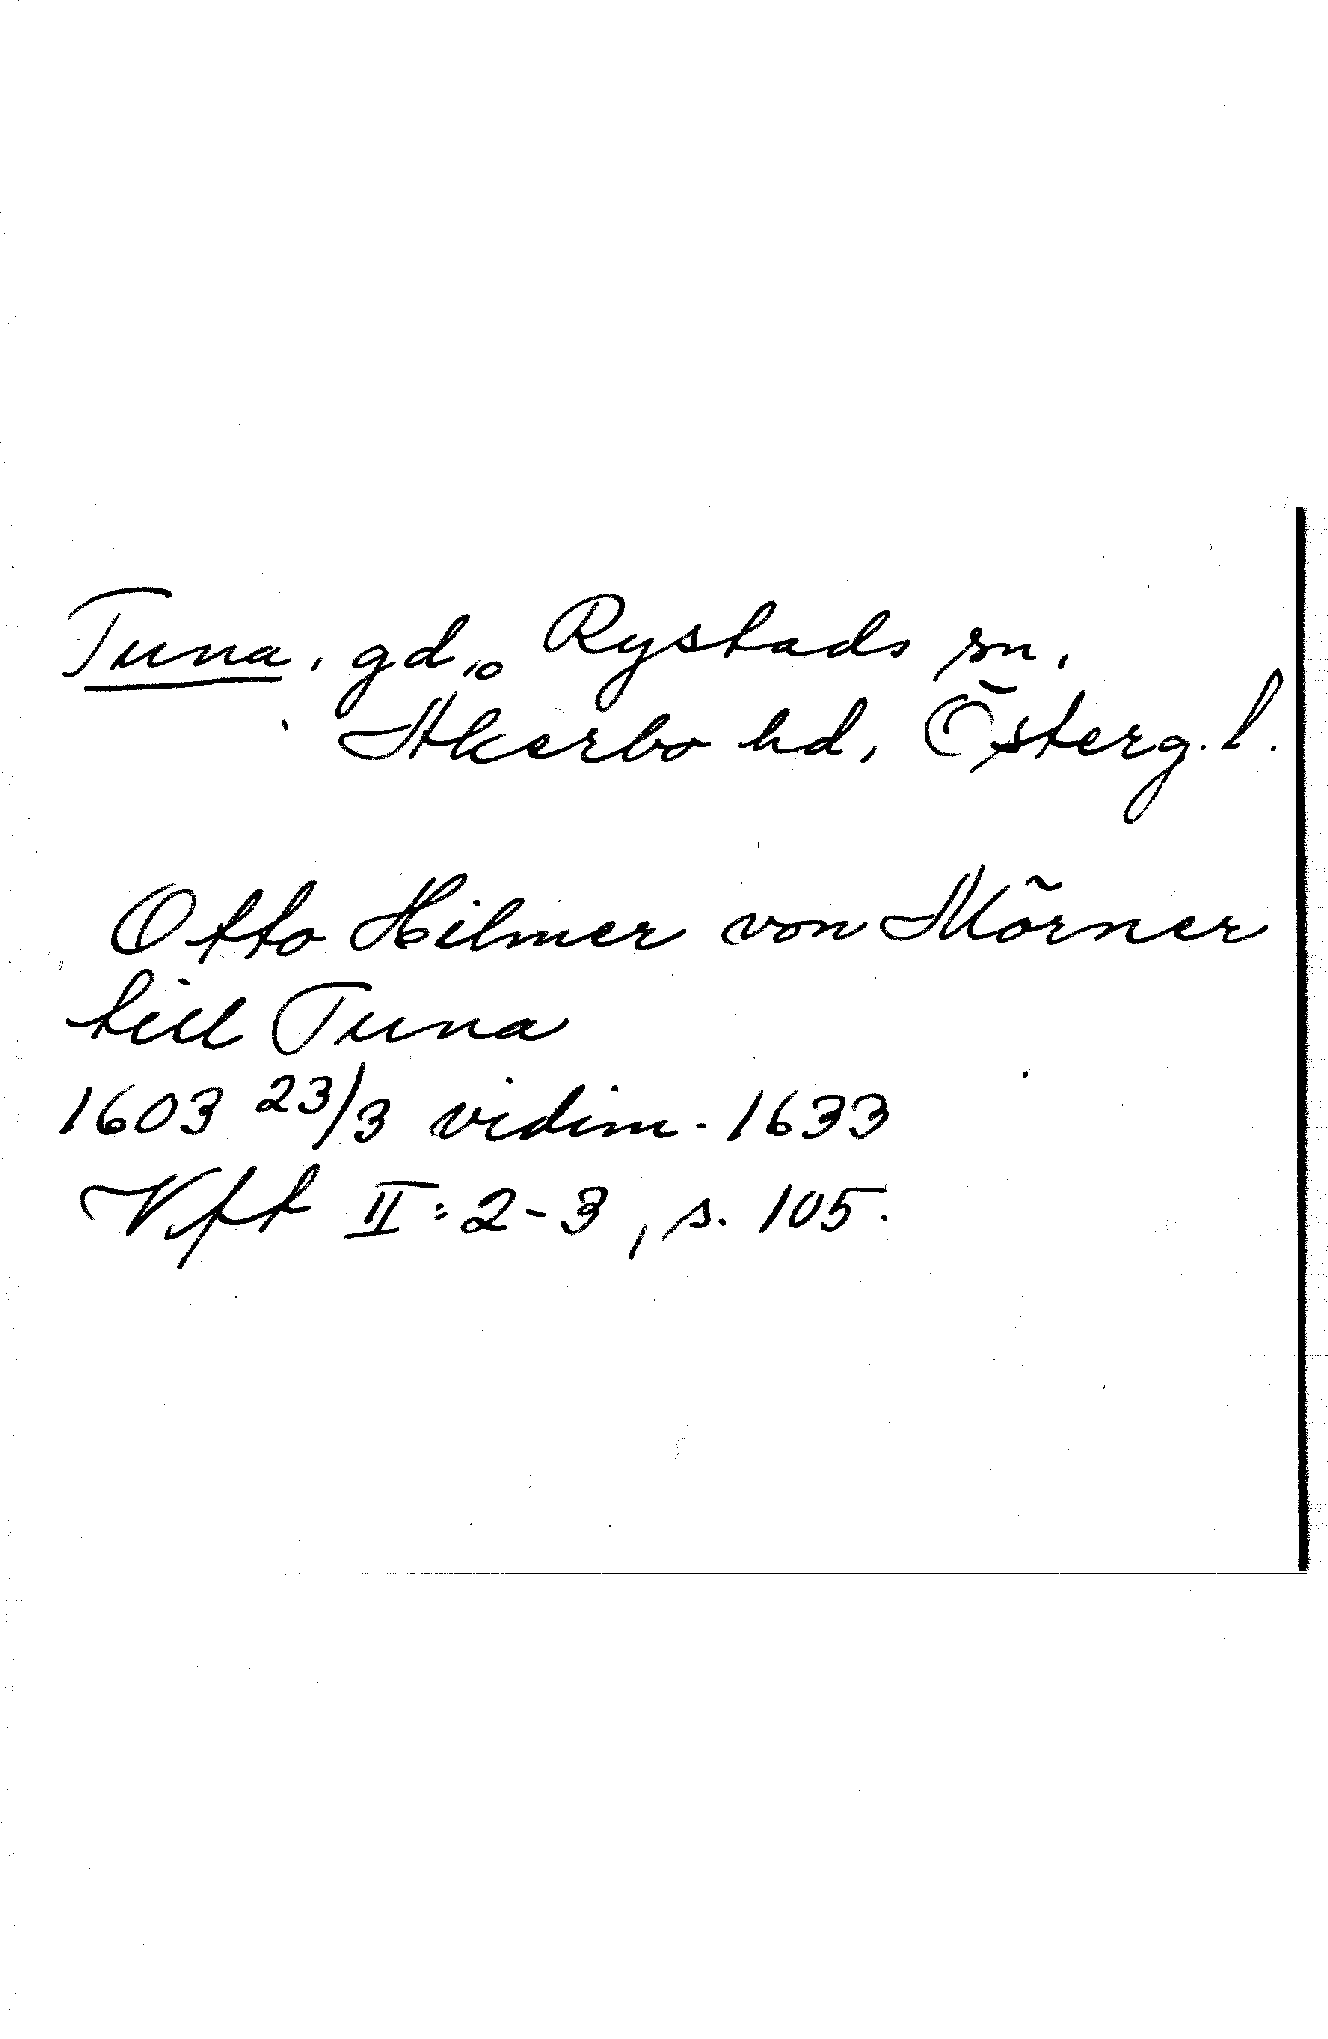 Tuna, gd, Rystads sn,
Åkerbo hd, Österg. l.
Otto Hilmer von Mörner
till Tuna
1603 23/3 vidim. 1633
Vft II:2-3, s. 105.